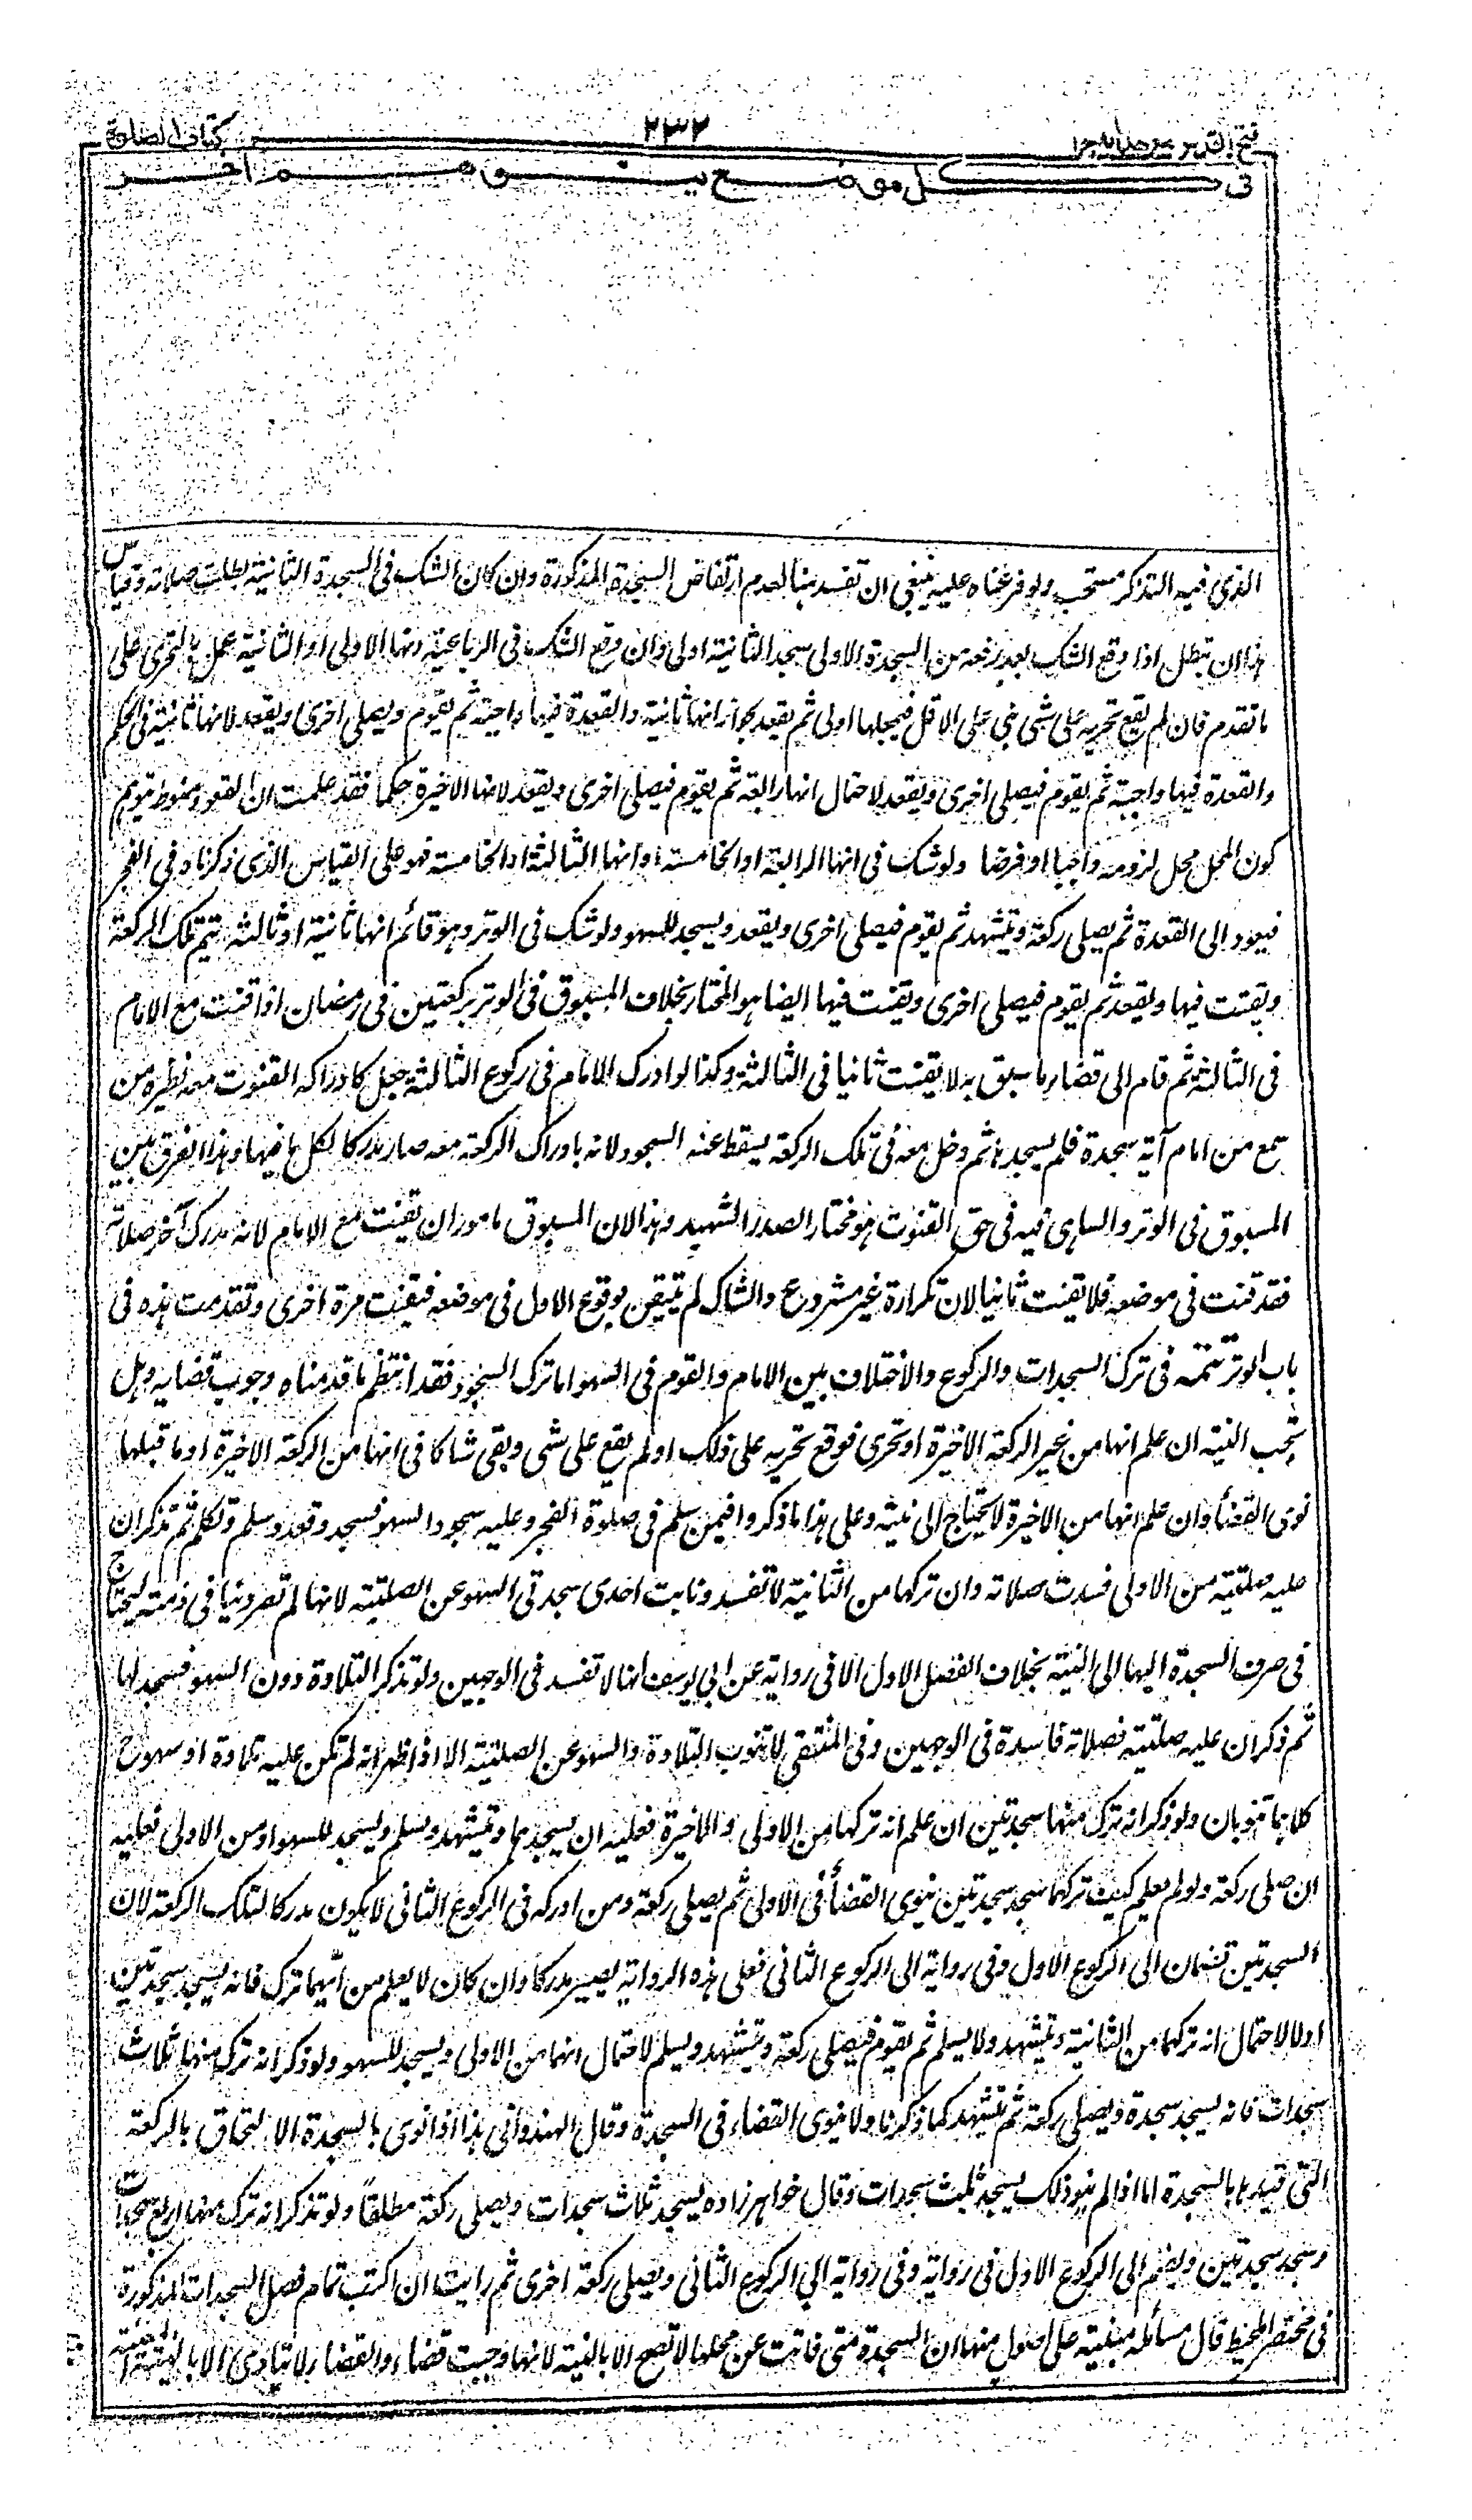 فتح القدير مع هدايه جرا
٢٣٢
كتاب الصلوة
فى كل موضع يتوهم اخر
الذى فيه التذكر مستحب ولو فرغناه عليه ينبغى ان تفسد هنا لعدم ارتفاض السجدة المذكورة وان كان الشك فى السجدة الثانية بطلت صلاته وقياس
هذا ان تبطل اذا وقع الشك بعد رفعه من السجدة الاولى سجد الثانية اولى وان وقع الشك فى الرباعية انها الاولى او الثانية عمل بالتحرى على
ما تقدم فان لم يقع تحريه على شى بنى على الاقل فيجعلها اولى ثم يقعد لجواز انها ثانية والقعدة فيها واجبة ثم يقوم ويصلى اخرى ويقعد لانها ثانية فى الحكم
والقعدة فيها واجبة ثم يقوم فيصلى اخرى ويقعد لاحتمال انها رابعة ثم يقوم فيصلى اخرى ويقعد لانها الاخيرة حكما فقد علمت ان القعود منوط بتوهم
كون المحل محل لزومه واجبا او فرضا ولو شك فى انها الرابعة او الخامسة او انها الثالثة او الخامسة فهو على القياس الذى ذكرناه فى الفجر
فيعود الى القعدة ثم يصلى ركعة ويتشهد ثم يقوم فيصلى اخرى ويقعد ويسجد للسهو ولو شك فى الوتر وهو قائم انها ثانية او ثالثة يتم تلك الركعة
ويقنت فيها ويقعد ثم يقوم فيصلى اخرى ويقنت فيها ايضا هو المختار بخلاف المسبوق فى الوتر بركعتين فى رمضان اذا قنت مع الامام
فى الثالثة ثم قام الى قضاء ما سبق به لا يقنت ثانيا فى الثالثة وكذا لو ادرك الامام فى ركوع الثالثة جعل كادراكه القنوت معه نظيره من
سمع من امام آية سجدة فلم يسجدها ثم دخل معه فى تلك الركعة يسقط عنه السجود لانه بادراك الركعة معه صار مدركا لكل ما فيها وهذا الفرق بين
المسبوق فى الوتر والساهى فيه فى حق القنوت هو مختار الصدر الشهيد وهذا لان المسبوق مامور ان يقنت مع الامام لانه مدرك آخر صلاته
فقد قنت فى موضعه فلا يقنت ثانيا لان تكراره غير مشروع والشاك لم يتيقن بوقوع الاول فى موضعه فيقنت مرة اخرى وتقدمت هذه فى
باب الوتر تتمه فى ترك السجدات والركوع والاختلاف بين الامام والقوم فى السهو اما ترك السجود فقد انتظم ما قدمناه وجوب قضايه وهل
تجب النية ان علم انها من غير الركعة الاخيرة او تحرى فوقع تحريه على ذلك او لم يقع على شى وبقى شاكا فى انها من الركعة الاخيرة او ما قبلها
نوى القضأ وان علم انها من الاخيرة لا يحتاج الى نية وعلى هذا ما ذكروا فيمن سلم فى صلوة الفجر وعليه سجود السهو فسجد وقعد وسلم وتكلم ثم تذكر ان
عليه صلبية من الاولى فسدت صلاته وان تركها من الثانية لا تفسد ونابت احدى سجدتى السهو عن الصلبية لانها لم تصر دينا فى ذمته ليحتاج
فى صرف السجدة اليها الى النية بخلاف الفصل الاول الا فى رواية عن ابى يوسف انها لا تفسد فى الوجهين ولو تذكر التلاوة دون السهو فسجد لها
ثم ذكر ان عليه صلبية فصلاته فاسدة فى الوجهين وفى المنتقى لا تنوب التلاوة والسهو عن الصلبية الا اذا ظهر انه لم تكن عليه تلاوة او سهو ح
كلاهما تنوبان ولو ذكر انه ترك منها سجدتين ان علم انه تركها من الاولى والاخيرة فعليه ان يسجدهما ويتشهد ويسلم ويسجد للسهو او من الاولى فعليه
ان صلى ركعة ولو لم يعلم كيف تركها سجد سجدتين ينوى القضأ فى الاولى ثم يصلى ركعة ومن ادركه فى الركوع الثانى لا يكون مدركا لتلك الركعة لان
السجدتين تضمان الى الركوع الاول وفى رواية الى الركوع الثانى فعلى هذه الرواية يصير مدركا وان كان لا يعلم من ايهما ترك فانه يسجد سجدتين
اولا لاحتمال انه تركها من الثانية ويتشهد ولا يسلم ثم يقوم فيصلى ركعة ويتشهد ويسلم لاحتمال انهما من الاولى ويسجد للسهو ولو ذكر انه ترك منها ثلاث
سجدات فانه يسجد سجدة ويصلى ركعة ثم يتشهد كما ذكرنا ولا ينوى القضاء فى السجدة وقال الهندوانى هذا اذا نوى بالسجدة الالتحاق بالركعة
التى قيدها بالسجدة اما اذا لم ينو ذلك يسجد ثلث سجدات وقال خواهر زاده يسجد ثلاث سجدات ويصلى ركعة مطلقاً ولو تذكر انه ترك منها اربع سجدات
وسجد سجدتين ويضم الى الركوع الاول فى رواية وفى رواية الى الركوع الثانى ويصلى ركعة اخرى ثم رايت ان اكتب تمام فصل السجدات المذكورة
فى مختصر المحيط قال مسائله مبنية على اصول منها ان السجدة متى فاتت عن محلها لا تصح الا بالنية لانها وجبت قضاء والقضاء لا يتادى الا بالنية